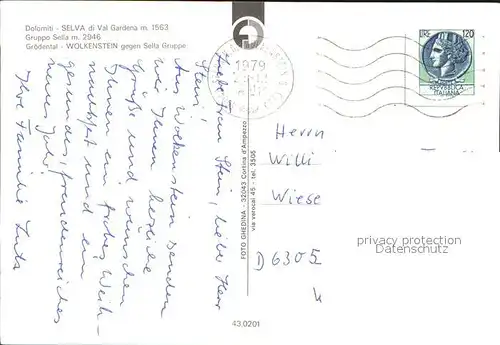 Dolomiti - SELVA di Val Gardena m. 1563
Gruppo Sella m. 2946
Grödental - WOLKENSTEIN gegen Sella Gruppe
1979
LIRE 120
REPVBBLICA
ITALIANA
Liebe Frau Stein, lieber Herr
Stein!
Aus Wolkenstein senden
wir Ihnen herzliche
Grüße und wünschen
Ihnen ein frohes Weih-
nachtsfest und ein
gesundes, freudenreiches
neues Jahr
Ihre Familie
FOTO GHEDINA - 32043 Cortina d'Ampezzo
via verocai 45 - tel. 3505
Herrn
Willi
Wiese
D 6305
privacy protection
Datenschutz
43.0201